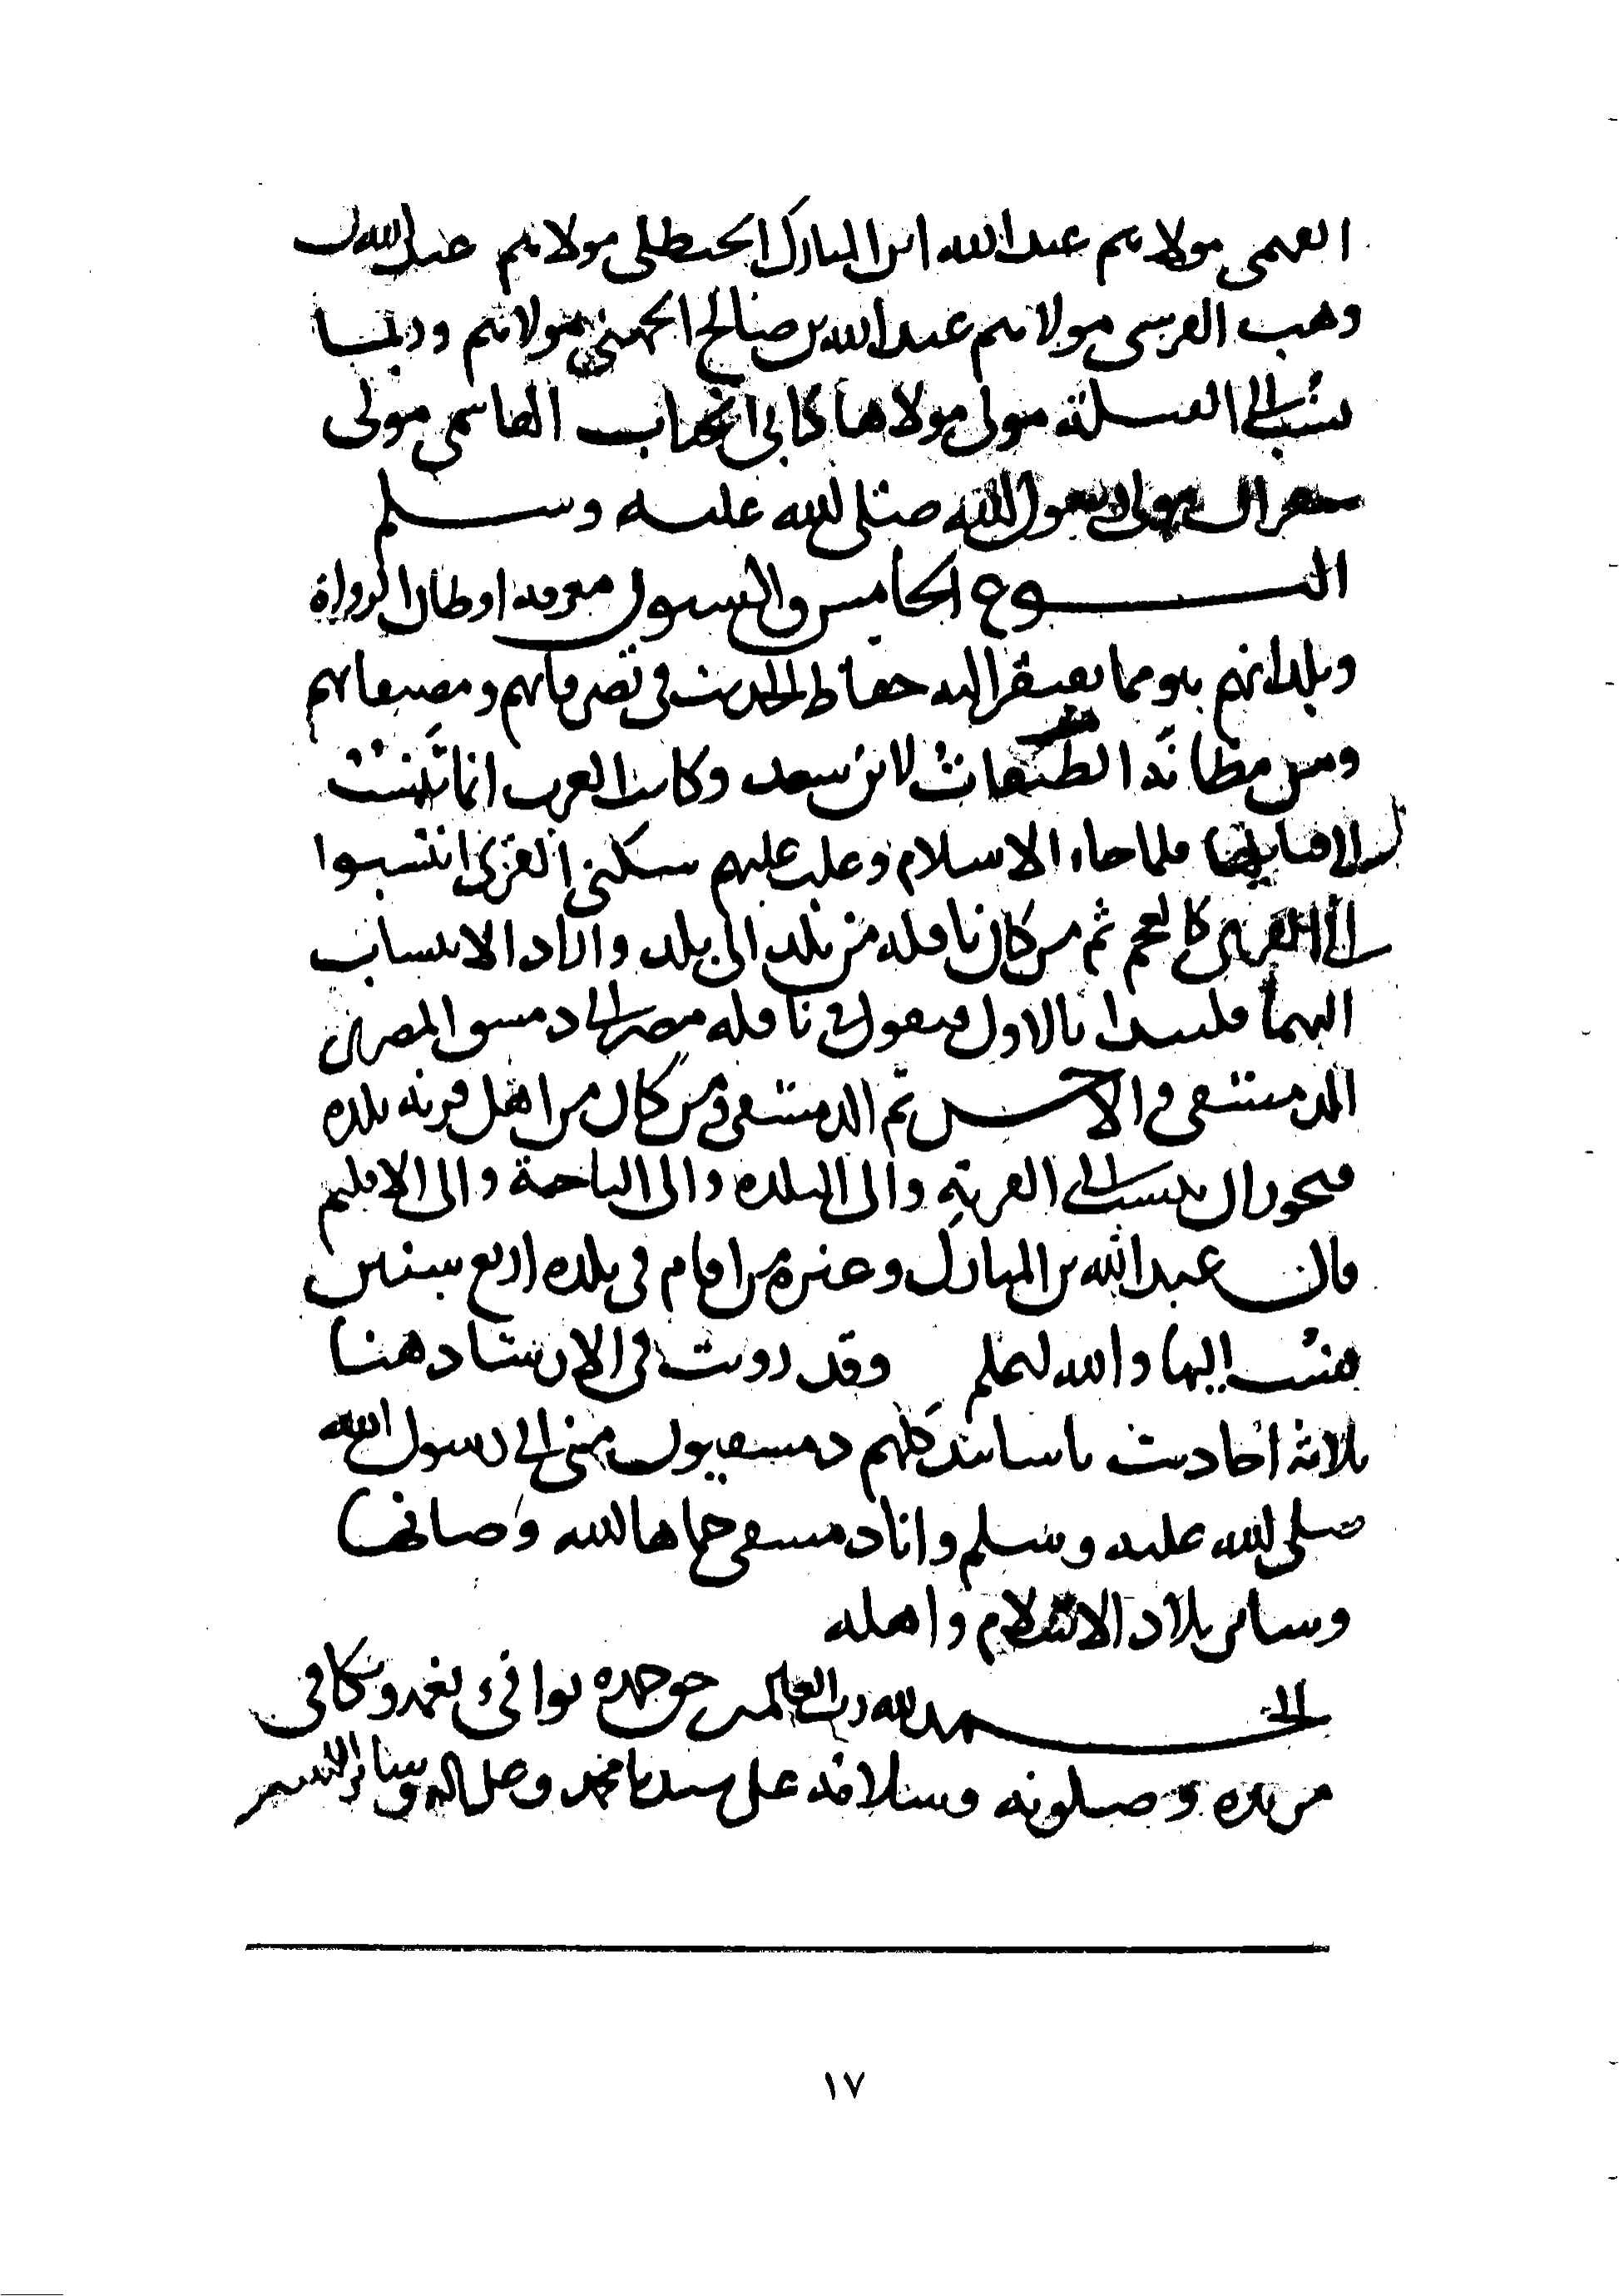 الفهمى مولاهم عبدالله ابن المبارك الحنظلى مولاهم عبدالله بن
وهب القرشى مولاهم عبدالله بن صالح الجهنى مولاهم وربما
نسب الى القبيلة مولى مولاها كابى الحباب الهاشمى مولى
شقران مولى رسول الله صلى الله عليه وسلم
النوع الخامس والستون معرفة اوطان الرواة
وبلدانهم هو مما يفتقر اليه حفاظ الحديث فى تصرفاتهم ومصنفاتهم
ومن مظانه الطبقات لابن سعد وكانت العرب انما تنتسب
الى قبايلها فلما جاء الاسلام وغلب عليهم سكنى القرى انتسبوا
الى القرى كالعجم ثم من كان ناقله من بلد الى بلد واراد الانتساب
اليهما فليبدا بالاول فيقول فى ناقله مصر الى دمشق المصرى
الدمشقى والاحسن ثم الدمشقى ومن كان من اهل قرية بلده
فيجوز ان ينتسب الى القرية والى البلده والى الناحية والى الاقليم
قال عبدالله بن المبارك وغيره من اقام فى بلده اربع سنين
نسب اليها والله اعلم وقد رويت فى الارشاد هنا
ثلاثة احاديث باسانيد كلهم دمشقيون منى الى رسول الله
صلى الله عليه وسلم وانا دمشقى حماها الله وصانها
وساير بلاد الاسلام واهله
الحمد لله رب العالمين حق حمده يوافى نعمه ويكافى
مزيده وصلوته وسلامه على سيدنا محمد وعلى اله وساير النبيين
١٧